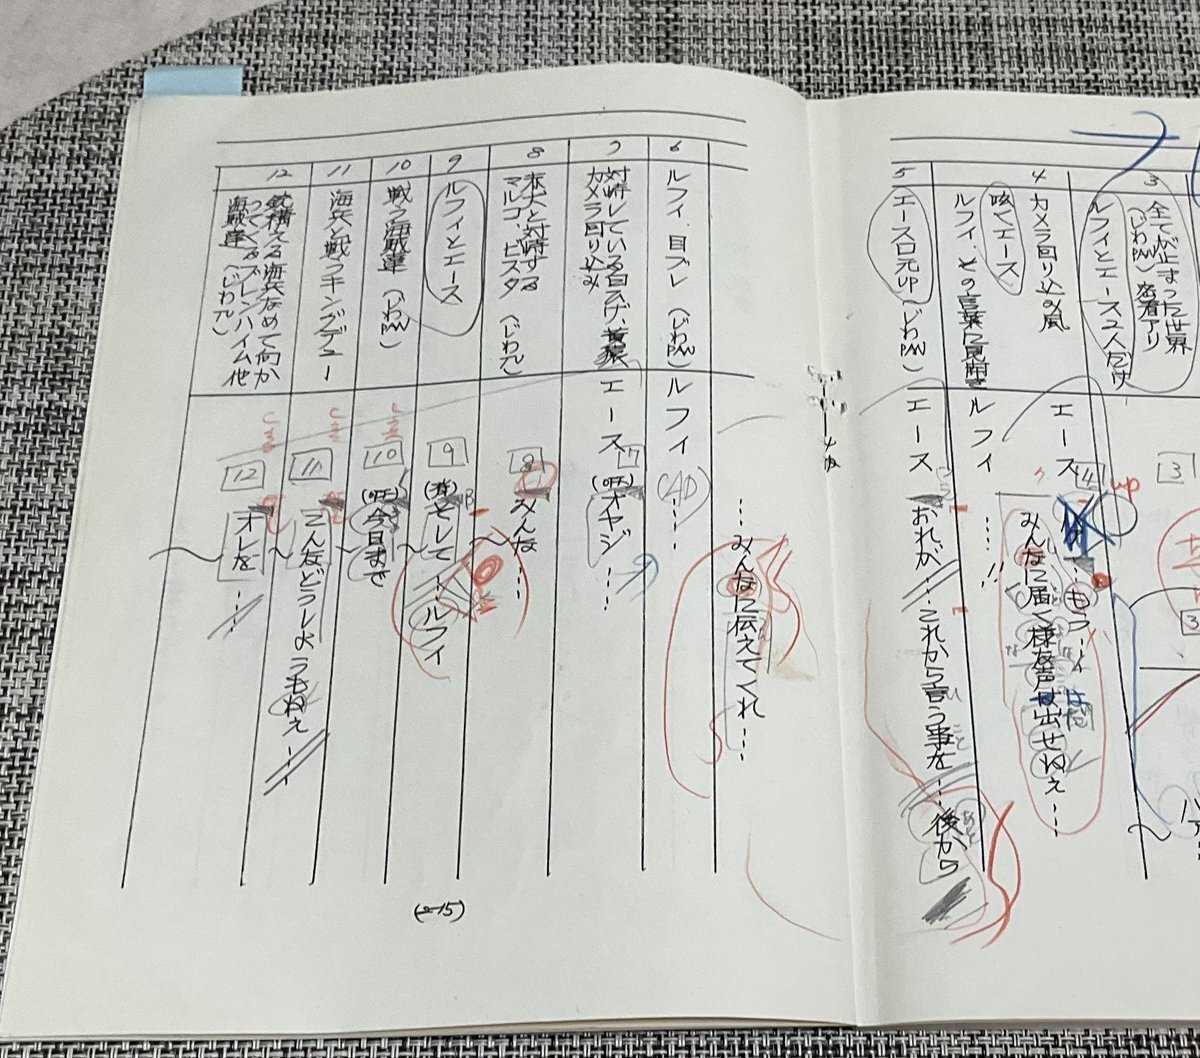 3
全てが止まった世界
(じわPAN) 密着アリ
ルフィとエース2人だけ
3
3
4
カメラ回り込み風
呟くエース
ルフィ、その言葉に見開き
エース
4
…もう…
みんなに届く様な声は出せねェ…
up
ルフィ
…!!
5
エース口元UP (じわPAN)
エース
おれが…これから言う事を…後から
あと
…みんなに伝えてくれ…
6
ルフィ、目ブレ (じわPAN)
ルフィ
(AD)
…
7
対峙している白ひげ、黄猿
カメラ回り込み
エース
7
(OFF)
オヤジ…
8
赤犬と対峙する
マルコ、ビスタ (じわTU)
8
みんな…
9
ルフィとエース
9
(背)
そして…ルフィ
10
戦う海賊達 (じわPAN)
10
(OFF)
今日まで
11
海兵と戦うキングデュー
11
こんなどうしようもねェ…
12
銃構える海兵なめて向か
ってくるブレンハイム他
海賊達 (じわTU)
12
オレを…
(2-15)